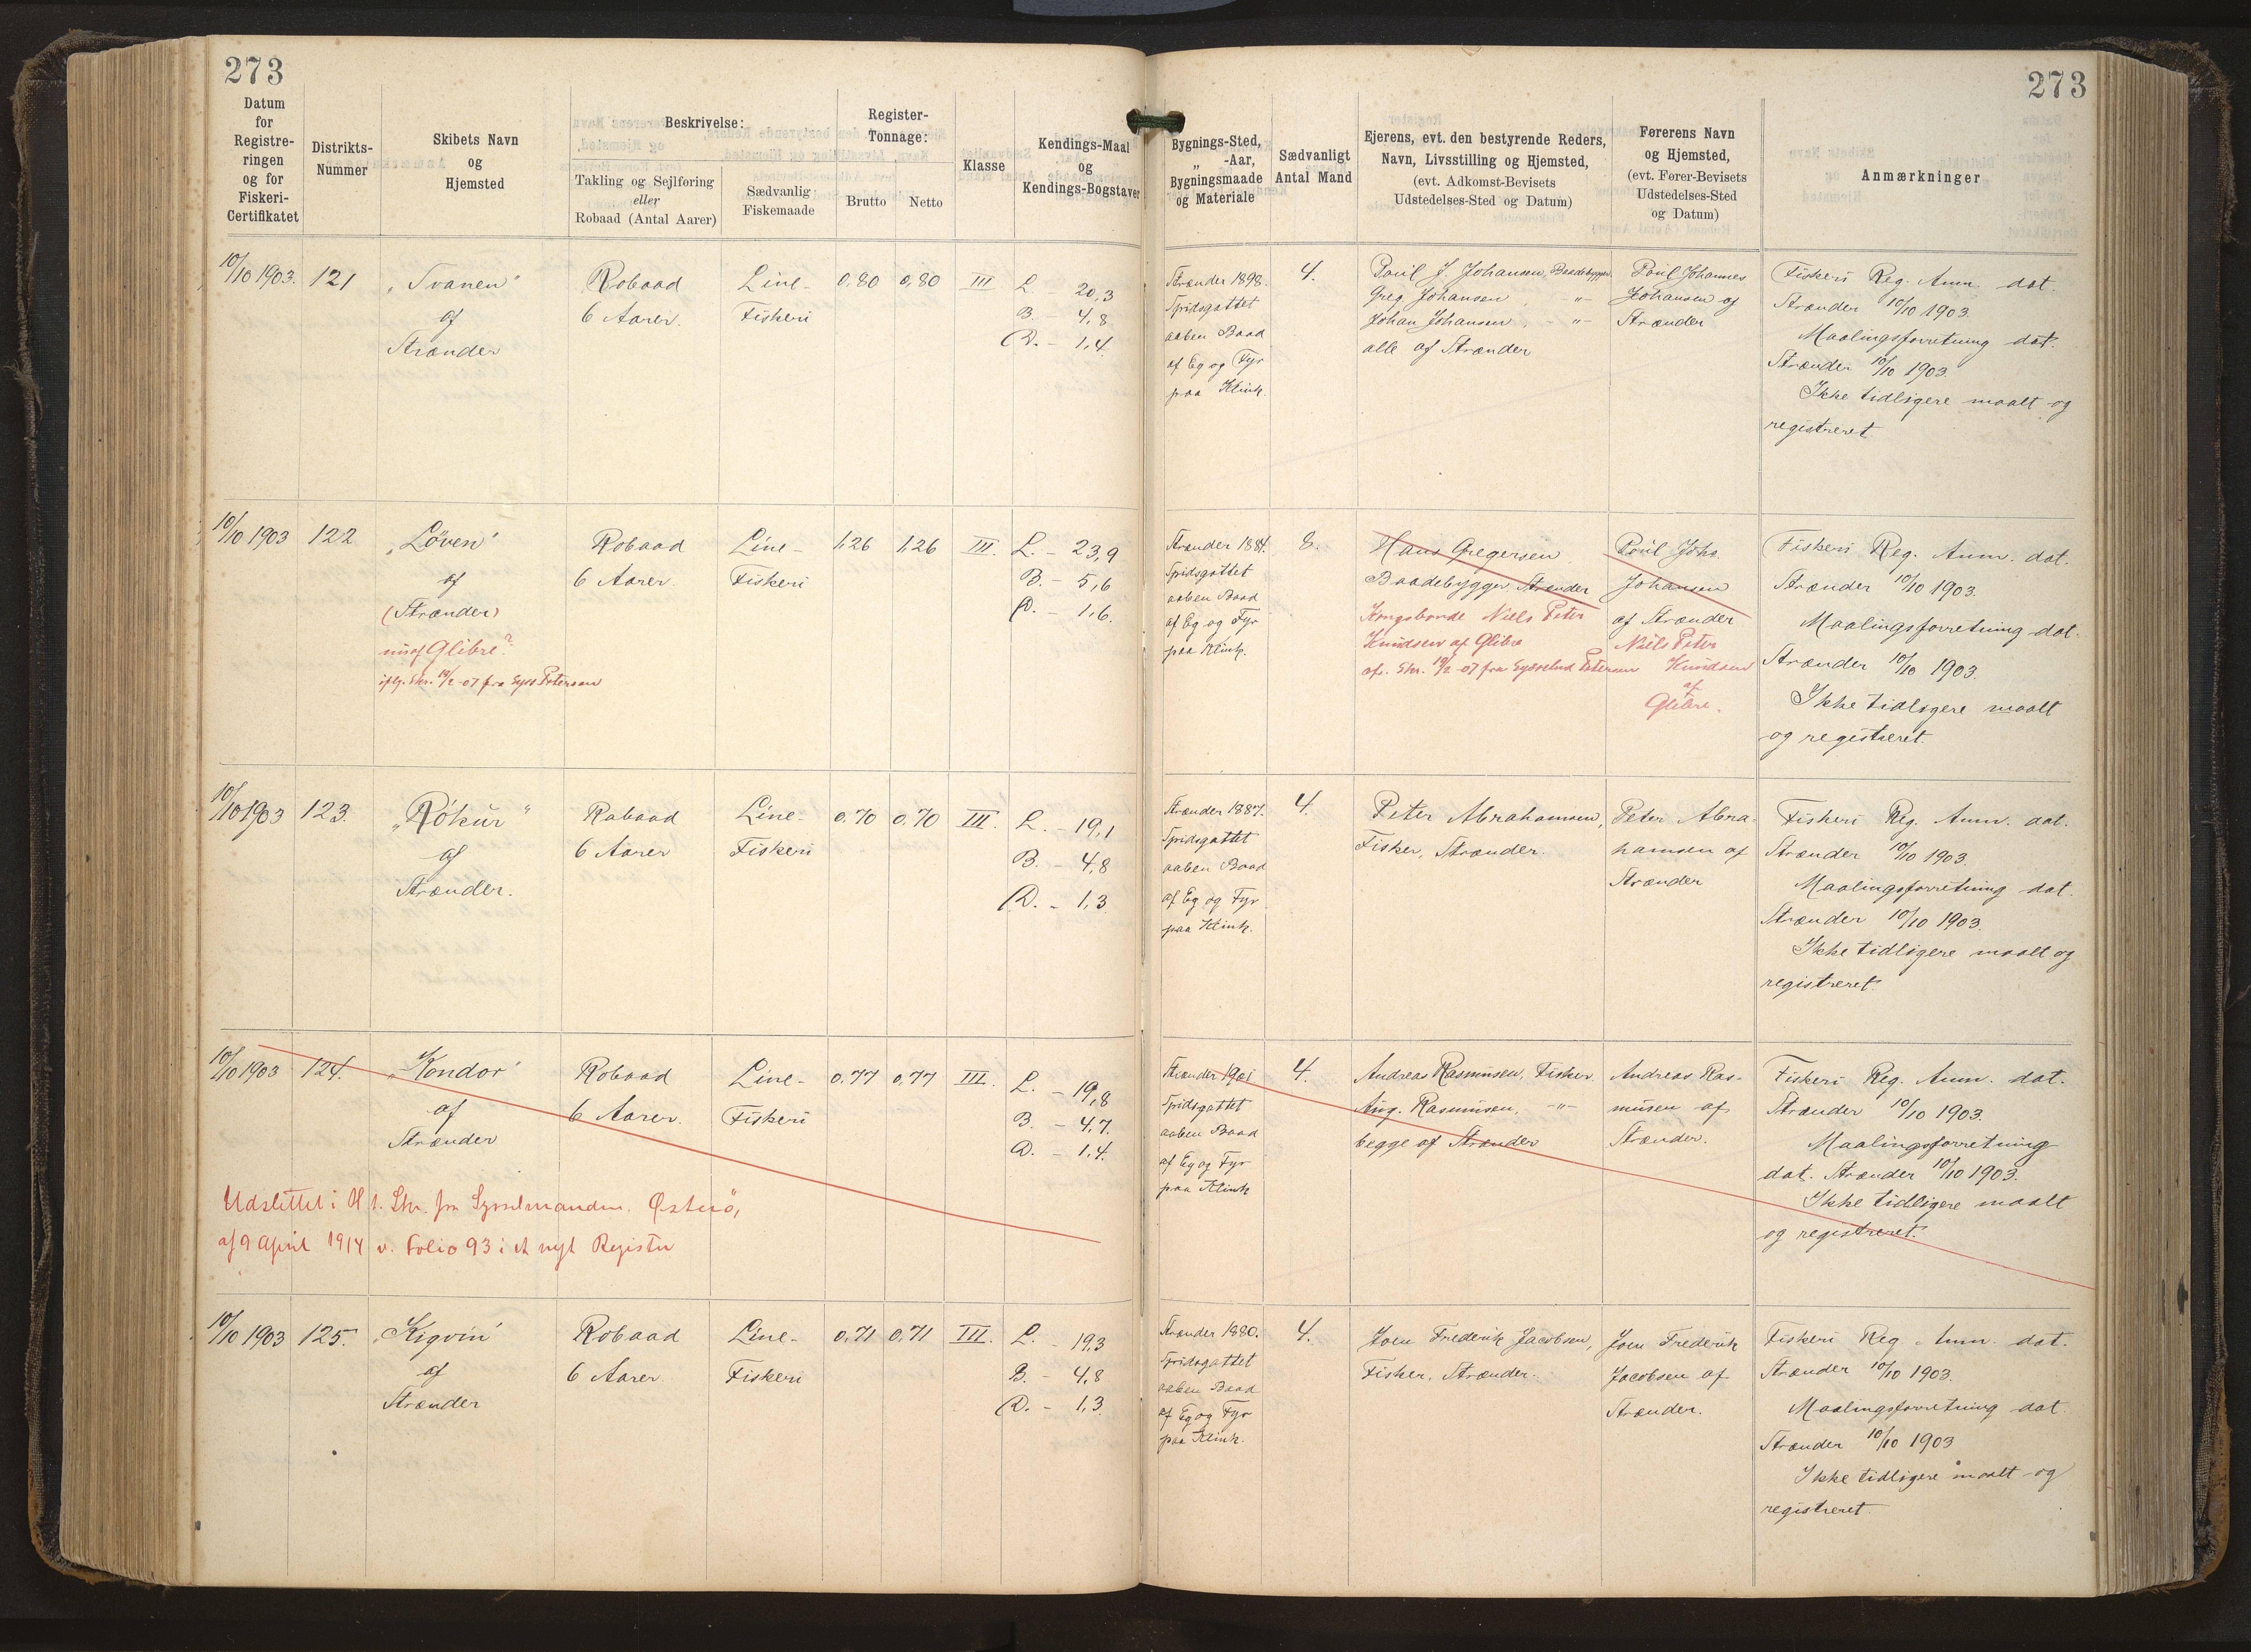 273
273
Datum for Registreringen og for Fiskeri-Certifikatet
Distrikts-Nummer
Skibets Navn og Hjemsted
Beskrivelse:
Takling og Sejlføring eller Robaad (Antal Aarer)
Sædvanlig Fiskemaade
Register-Tonnage:
Brutto
Netto
Klasse
Kendings-Maal og Kendings-Bogstaver
Bygnings-Sted, „ -Aar, Bygningsmaade og Materiale
Sædvanligt Antal Mand
Ejerens, evt. den bestyrende Reders, Navn, Livsstilling og Hjemsted, (evt. Adkomst-Bevisets Udstedelses-Sted og Datum)
Førerens Navn og Hjemsted, (evt. Fører-Bevisets Udstedelses-Sted og Datum)
Anmærkninger
10/10 1903. 121 „Svanen" Robaad Line- 0,80 0,80 III L. 20,3
af 6 Aarer. Fiskeri B. - 4,8
Strænder D. - 1,4.
Strænder 1898.
Spidsgattet
aaben Baad
af Eg og Fyr
paa Klink.
4.
Poul J. Johansen, Baadebygger,
Greg. Johansen, -"-
Johan Johansen, -"-
alle af Strænder
Poul Johannes
Johansen af
Strænder
Fiskeri Reg. Anm. dat.
Strænder 10/10 1903.
Maalingsforretning dat.
Strænder 10/10 1903.
Ikke tidligere maalt og
registreret.
10/10 1903 122 „Løven" Robaad Line- 1,26 1,26 III. L. - 23,9
af 6 Aarer. Fiskeri B. - 5,6
(Strænder) D. - 1,6.
nu af Glibre?
iflg. Skr. 19/2-07 fra Syss. Petersen
Strænder 1884.
Spidsgattet
aaben Baad
af Eg og Fyr
paa Klink.
8.
Hans Gregersen
Baadebygger, Strænder
Kongsbonde Niels Peter
Knudsen af Glibre
Skr. 19/2-07 fra Sysselmd Petersen
Poul Johs.
Johansen
af Strænder
Niels Peter
Knudsen
af
Glibre.
Fiskeri Reg. Anm. dat.
Strænder 10/10 1903.
Maalingsforretning dat.
Strænder 10/10 1903.
Ikke tidligere maalt
og registreret.
10/10 1903 123. „Rókur" Robaad Line- 0,70 0,70 III. L. - 19,1
af 6 Aarer Fiskeri B. - 4,8
Strænder. D. - 1,3
Strænder 1887.
Spidsgattet
aaben Baad
af Eg og Fyr
paa Klink.
4.
Peter Abrahamsen,
Fisker, Strænder.
Peter Abra-
hamsen af
Strænder
Fiskeri Reg. Anm. dat.
Strænder 10/10 1903.
Maalingsforretning dat.
Strænder 10/10 1903.
Ikke tidligere maalt og
registreret.
10/10 1903 124. „Kondor" Robaad Line- 0,77 0,77 III. L. - 19,8
af 6 Aarer. Fiskeri B. - 4,7.
Strænder D. - 1,4.
Udslettet i H. t. Skr. fra Sysselmanden. Østerö,
af 9 April 1914 v. Folio 93 i et nyt Register
Strænder 1901
Spidsgattet
aaben Baad
af Eg og Fyr
paa Klink
4.
Andreas Rasmusen, Fisker.
Aug. Rasmusen, -"-
begge af Strænder
Andreas Ras-
musen af
Strænder.
Fiskeri Reg. Anm. dat.
Strænder 10/10 1903.
Maalingsforretning
dat. Strænder 10/10 1903.
Ikke tidligere maalt
og registreret.
10/10 1903 125. „Kigvin" Robaad Line- 0,71 0,71 III. L. - 19,3
af 6 Aarer. Fiskeri B. - 4,8
Strænder D. - 1,3.
Strænder 1880.
Spidsgattet
aaben Baad
af Eg og Fyr
paa Klink.
4.
Joen Frederik Jacobsen,
Fisker, Strænder.
Joen Frederik
Jacobsen af
Strænder.
Fiskeri Reg. Anm. dat.
Strænder 10/10 1903.
Maalingsforretning dat.
Strænder 10/10 1903
Ikke tidligere maalt og
registreret.